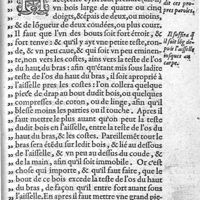 dit ces
pres paroles,
vn bois large de quatre ou cinq
doigts, & épois de deux, ou moins,
& de lõgueur de deux coudées, ou plus court.
Il faut que l'vn des bouts soit fort étroit, &
fort tenve: & qu'il y ayt vne petite teste, ron-
de, & vn peu caue, & qui soit vn peu eminen-
te, non vers les costes, ains vers la teste de l'os
du haut du bras: afin qu'étant mis sous ladite
teste de l'os du haut du bras, il soit aproprié à
l'aisselle pres les costes: l'on collera quelque
piece de drap au bout dudit bois, ou quelques
compresses de toile, comme on pliée, afin qu'il
blesse moins les parties ou il touche. Apres il
faut mettre plus auant que l'on peut la teste
dudit bois en l'aisselle, entre la teste de l'os du
haut du bras, & les costes. Pareillemẽt tout le
bras sera étẽdu sur ledit bois, & lié au dessous
de l'aisselle, & vn peu au dessus du coude, &
de la main, afin qu'il soit immobile. Or cest
chose qui importe, & qu'il faut faire, que le
bout de ce bois excede la teste de l'os du haut
du bras, de façon qu'il entre fort auant sous
l'aisselle. En apres il faut mettre vne grand pie-
Il suffira q
il soit lõg de-
puis l'aisselle
jusques au